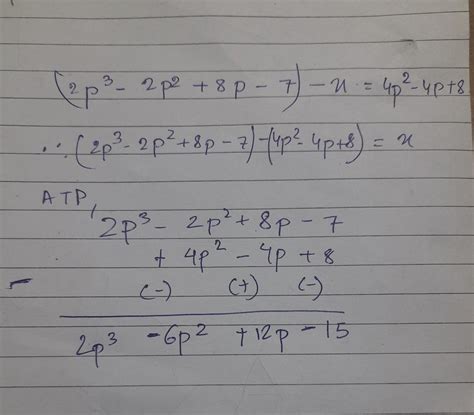 (2p³ - 2p² + 8p - 7) - x = 4p² - 4p + 8
∴ (2p³ - 2p² + 8p - 7) - (4p² - 4p + 8) = x
ATP,
2p³ - 2p² + 8p - 7
+ 4p² - 4p + 8
- (-) (+) (-)
2p³ - 6p² + 12p - 15